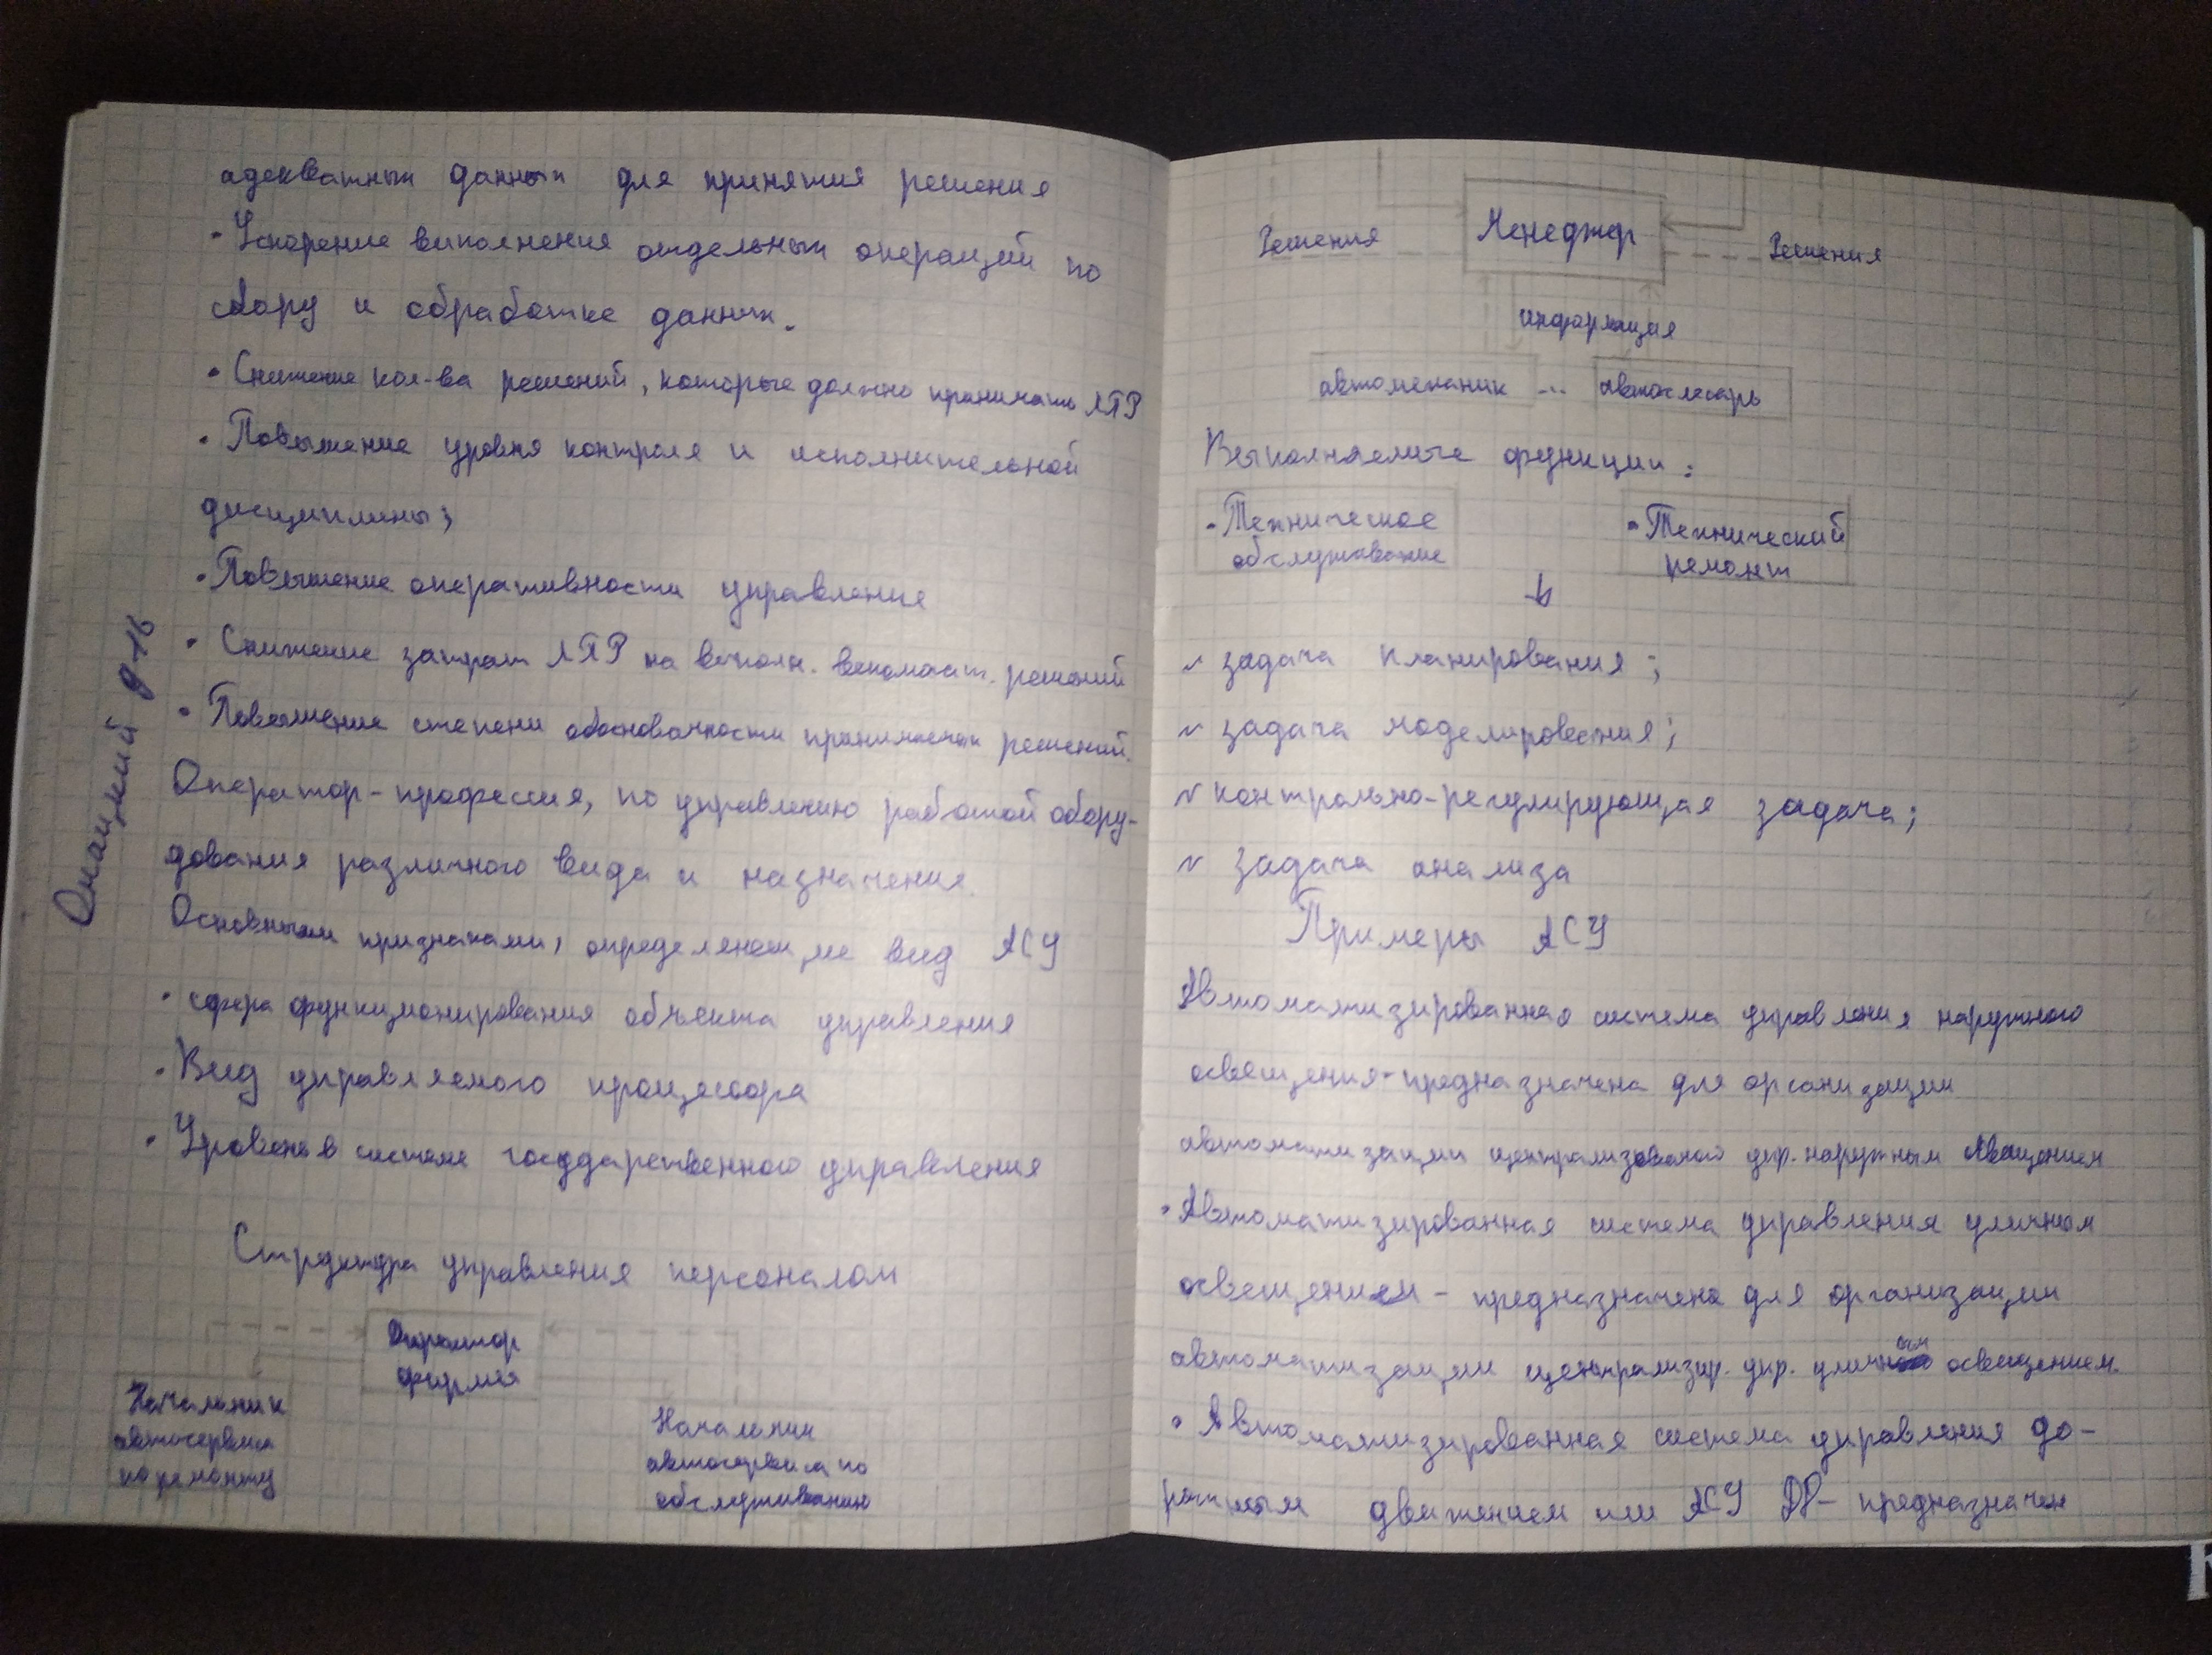 адекватных данных для принятия решения
• Ускорение выполнения отдельных операций по
сбору и обработке данных.
• Снижение кол-ва решений, которые должно принимать ЛПР
• Повышение уровня контроля и исполнительной
дисциплины;
• Повышение оперативности управление
• Снижение затрат ЛПР на выполн. вспомогат. решений
• Повышение степени обоснованности принимаемых решений.
Оператор - профессия, по управлению работой обору-
дования различного вида и назначения.
Основными признаками, определяющие вид АСУ
• сфера функционирования объекта управления
• Вид управляемого процессора
• Уровень в системе государственного управления
Структура управления персоналом
Директор
фирмы
Начальник
автосервиса
по ремонту
Начальник
автосервиса по
обслуживанию
Решения Менеджер Решения
информация
автомеханик ... автослесарь
Выполняемые функции:
• Техническое
обслуживание
• Технический
ремонт
v задача планирования;
v задача моделирования;
v контрольно-регулирующая задача;
v задача анализа
Примеры АСУ
Автоматизированная система управления наружного
освещения - предназначена для организации
автоматизации централизованого упр. наружным освещением
• Автоматизированная система управления уличном
освещением - предназначена для организации
автоматизации централизир. упр. уличным освещением.
• Автоматизированная система управления до-
рожным движением или АСУ ДД - предназначен